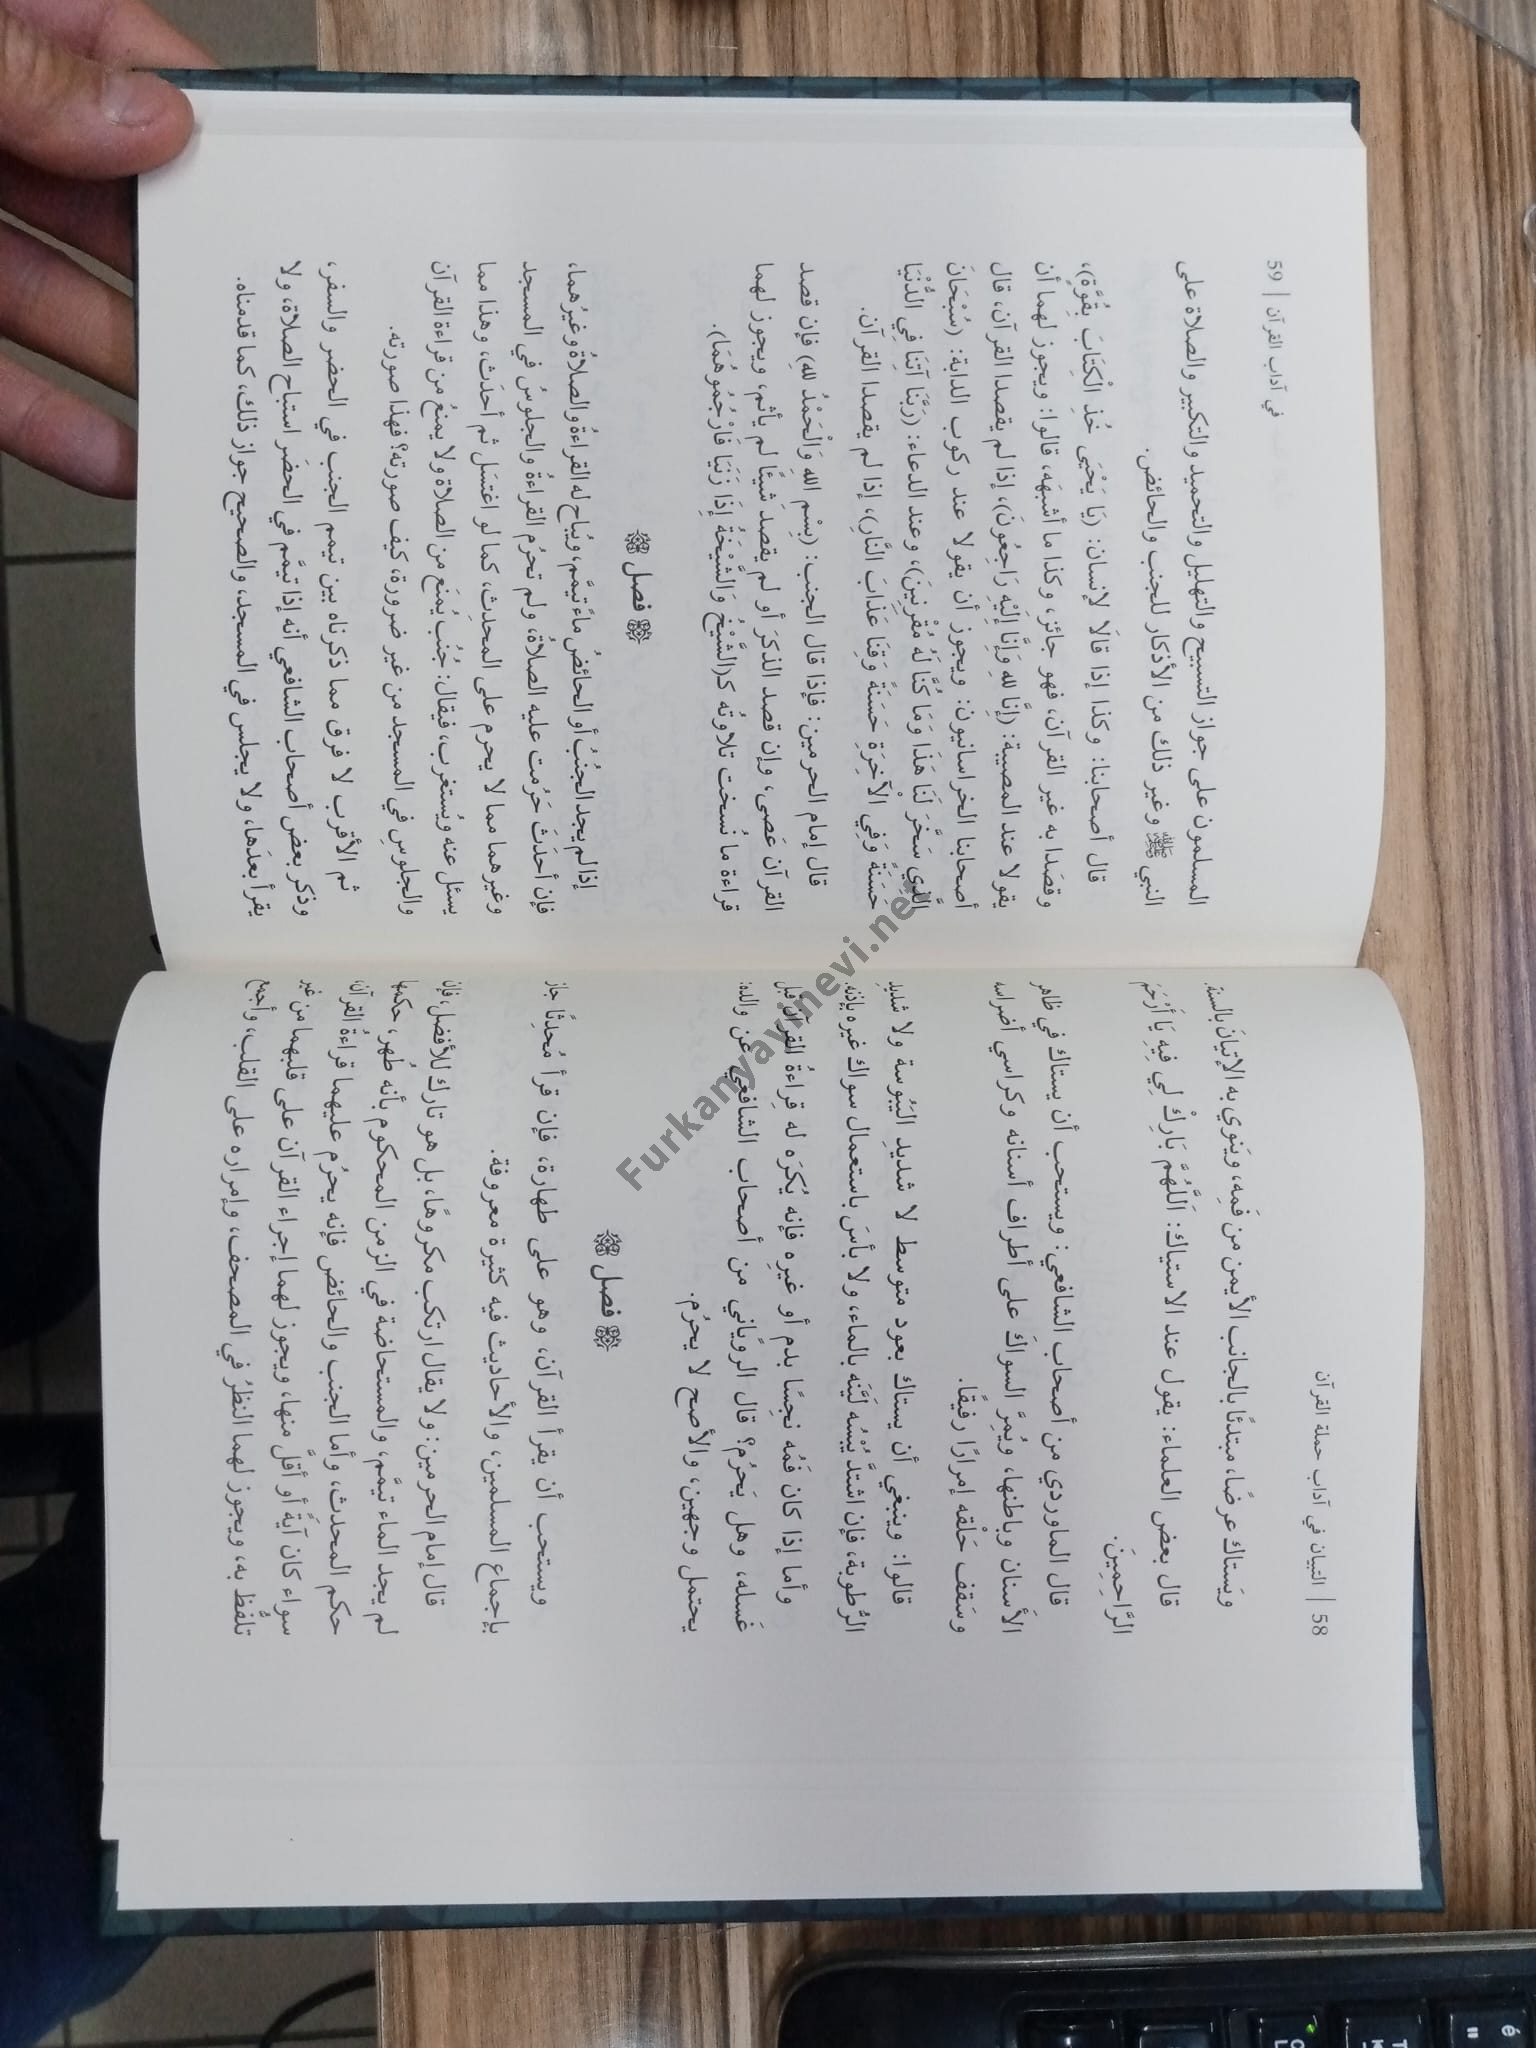 58 | التبيان في آداب حملة القرآن
ويَستاك عرضًا، مبتدئًا بالجانب الأيمن من فَمِه، وَينوي به الإتيانَ بالسنة.
قال بعض العلماء: يقول عند الاستياك: اَللَّهُمَّ بَارِكْ لِي فِيهِ يَا أَرْحَمَ
الرَّاحِمِينَ.
قال الماوردي من أصحاب الشافعي: ويستحب أن يستاك في ظاهر
الأسنان وباطنها، ويُمِرَّ السواكَ على أطراف أسنانه وكراسي أضراسه
وسَقفِ حَلْقه إمرارًا رفيقًا.
قالوا: وينبغي أن يستاك بعود متوسط لا شديدِ اليَبُوسة ولا شديدِ
الرُّطوبة، فإن اشتدَّ يُبْسُه لَيَّنَه بالماء، ولا بأسَ باستعمال سواك غيره بإذنه.
وأما إذا كان فَمُه نجِسًا بدم أو غيرِه فإنه يُكرَه له قِراءةُ القرآن قبل
غَسله، وهل يَحرُم؟ قال الروُياني من أصحاب الشافعي عن والده:
يحتمل وجهين، والأصح لا يحرُم.
فصل
ويستحب أن يقرأ القرآن، وهو على طهارة، فإن قرأ مُحدِثًا جاز
بإجماع المسلمين، والأحاديث فيه كثيرة معروفة.
قال إمام الحرمين: ولا يقال ارتكب مكروهًا، بل هو تارك للأفضل، فإن
لم يجد الماء تيمَّم، والمستحاضة في الزمن المحكوم بأنه طُهر، حكمها
حكم المحدث، وأما الجنب والحائض فإنه يحرُم عليهما قراءةُ القرآن،
سواء كان آيَةً أو أقلَّ منها، ويجوز لهما إجراء القرآن على قلبهما من غير
تلفُّظ به، ويجوز لهما النظرُ في المصحف، وإمراره على القلب، وأجمع
في آداب القرآن | 59
المسلمون على جواز التسبيح والتهليل والتحميد والتكبير والصلاة على
النبي ﷺ وغير ذلك من الأذكار للجنب والحائض.
قال أصحابنا: وكذا إذا قالَا لإنسان: (يَا يَحْيَى خُذِ الْكِتَابَ بِقُوَّةٍ)،
وقصَدا به غير القرآن، فهو جائز، وكذا ما أشبهَه، قالوا: ويجوز لهما أن
يقولا عند المصيبة: (إِنَّا لِلهِ وَإِنَّا إِلَيْهِ رَاجِعُونَ)، إذا لم يقصدا القرآن، قال
أصحابنا الخراسانيون: ويجوز أن يقولا عند ركوب الدابة: (سُبْحَانَ
الَّذِي سَخَّرَ لَنَا هَذَا وَمَا كُنَّا لَهُ مُقْرِنِينَ)، وعند الدعاء: (رَبَّنَا آتِنَا فِي الدُّنْيَا
حَسَنَةً وَفِي الْآخِرَةِ حَسَنَةً وَقِنَا عَذَابَ النَّارِ)، إذا لم يقصدا القرآن.
قال إمام الحرمين: فإذا قال الجنب: (بِسْمِ اللهِ وَالْحَمْدُ لِلهِ) فإن قصد
القرآن عَصى، وإن قصد الذكرَ أو لم يقصد شيئًا لم يأثم، ويجوز لهما
قراءة ما نُسخت تلاوتُه كـ(الشَّيْخُ وَالشَّيْخَةُ إِذَا زَنَيَا فَارْجُمُوهُمَا).
فصل
إذا لم يجد الجُنُبُ أو الحائضُ ماءً تيمَّم، ويُباح له القراءةُ والصلاةُ وغيرُهما،
فإن أحدَثَ حَرُمت عليه الصلاةُ، ولم تحرُم القراءةُ والجلوسُ في المسجد
وغيرهما مما لا يحرم على المحدِث، كما لو اغتسَل ثم أحدَث، وهذا مما
يسئل عنه ويُستغرب، فيقال: جُنُب يُمنَع من الصلاة ولا يمنعُ من قراءة القرآن
والجلوسِ في المسجد من غير ضرورة، كيف صورته؟ فهذا صورته.
ثم الأقرب لا فرق مما ذكرناه بين تيمم الجنب في الحضر والسفر،
وذكر بعض أصحاب الشافعي أنه إذا تيمَّم في الحضَر استباح الصلاة، ولا
يقرأ بعدَها، ولا يجلس في المسجد، والصحيح جواز ذلك، كما قدمناه.
Furkanyayinevi.net